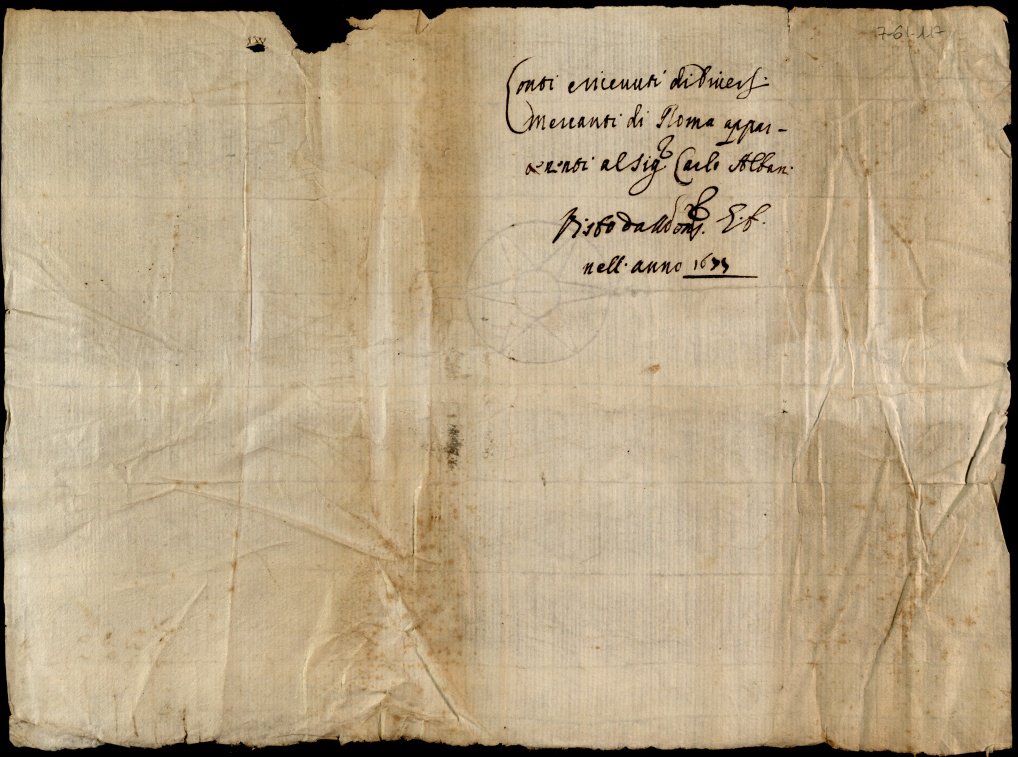 7-61-117
Conti e ricevuti di diversi
Mercanti di Roma appar-
tenenti al Sig.r Carlo Alban.
Visto da Mons.r
nell'anno